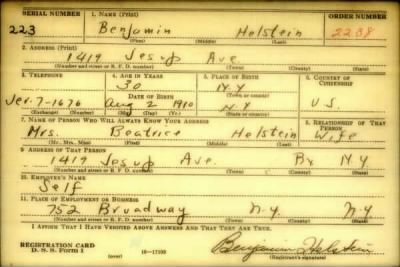 SERIAL NUMBER 1. NAME (Print) ORDER NUMBER
223 Benjamin Holstein 2238
(First) (Middle) (Last)
2. ADDRESS (Print)
1419 Jesup Ave
(Number and street or R. F. D. number) (Town) (County) (State)
3. TELEPHONE 4. AGE IN YEARS 5. PLACE OF BIRTH 6. COUNTRY OF CITIZENSHIP
30 N.Y.
DATE OF BIRTH (Town or county)
Jer. 7-1676 Aug 2 1910 N.Y. U.S.
(Exchange) (Number) (Mo.) (Day) (Yr.) (State or country)
7. NAME OF PERSON WHO WILL ALWAYS KNOW YOUR ADDRESS 8. RELATIONSHIP OF THAT PERSON
Mrs. Beatrice Holstein Wife
(Mr., Mrs., Miss) (First) (Middle) (Last)
9. ADDRESS OF THAT PERSON
1419 Jesup Ave. Bx N.Y.
(Number and street or R. F. D. number) (Town) (County) (State)
10. EMPLOYER'S NAME
Self
11. PLACE OF EMPLOYMENT OR BUSINESS
752 Broadway N.Y. N.Y.
(Number and street or R. F. D. number) (Town) (County) (State)
I AFFIRM THAT I HAVE VERIFIED ABOVE ANSWERS AND THAT THEY ARE TRUE.
REGISTRATION CARD
D. S. S. Form 1 (over) 16—17105 Benjamin Holstein
(Registrant's signature)